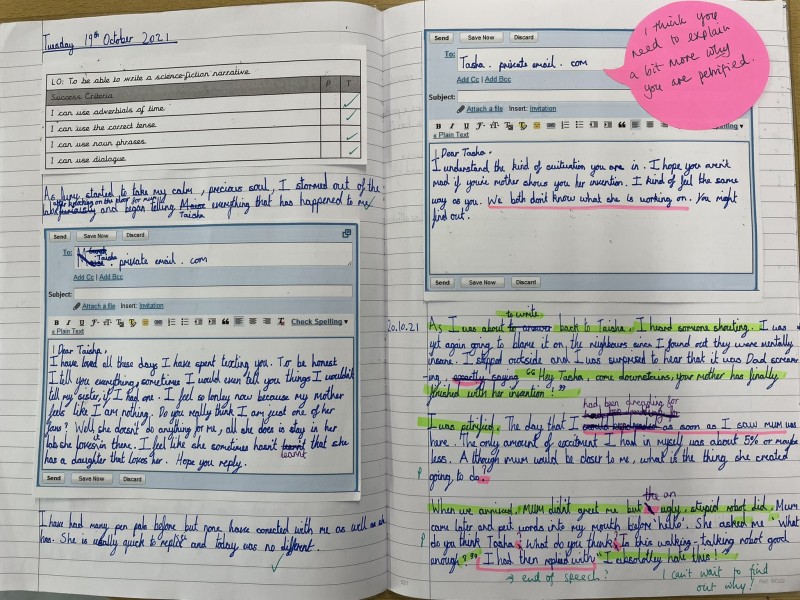 Tuesday 19th October 2021
LO: To be able to write a science-fiction narrative.
Success Criteria P T
I can use adverbials of time.
I can use the correct tense.
I can use noun phrases.
I can use dialogue.
As fury started to take my calm, precious soul, I stormed out of the
after splashing on the floor for
lab furiously and began telling everything that has happened to my
Taisha
Send Save Now Discard
To: Taisha . private email . com
Add Cc | Add Bcc
Subject:
Attach a file Insert: Invitation
Check Spelling
« Plain Text
Dear Taisha,
I have loved all these days I have spent texting you. To be honest
I tell you everything, sometimes I would even tell you things I wouldn't
tell my sister, if I had one. I feel so lonley now because my mother
feels like I am nothing. Do you really think I am just one of her
fans? Well, she doesn't do anything for me, all she does is stay in her
lab she loves in there. I feel like she sometimes hasn't learnt that she
learnt
has a daughter that loves her. Hope you reply.
Send Save Now Discard
I have had many pen pals before but none have conected with me as well as
has. She is usally quick to and today was no different.
Send Save Now Discard
To: Tasha . private email . com
Add Cc | Add Bcc
Subject:
Attach a file Insert: Invitation
Spelling
« Plain Text
I think you
need to explain
a bit more why
you are petrified.
Dear Tasha,
I understand the kind of you are in. I hope you aren't
mad if you're mother shows you her invention. I kind of feel the same
way as you. We both don't know what she is working on. You might
find out.
Send Save Now Discard
20.10.21
to write
As I was about to answer back to Taisha, I heard someone shouting. I was
yet again going to blame it on the neighbours since I found out they were mentally
insane. I stepped outside and I was surprised to hear that it was Dad scream
-ing, saying "Hey Tasha, come downstairs, your mother has finally
finished with her invention!"
had been dreading for
I was petrified. The day that I as soon as I saw mum was
here. The only amount of excitment I had in myself was about 5% or maybe
less. Although mum would be closer to me, what is the thing she created
P going to do?
the an
When we arrived, mum didn't greet me but ugly, stupid robot did. Mum
came later and put words into my mouth before 'hello'. She asked me "What
P do you think Tasha? What do you think? Is this walking-talking robot good
enough?" I had then replied with "I absolutley hate this!"
→ end of speech?
I can't wait to find
out why!